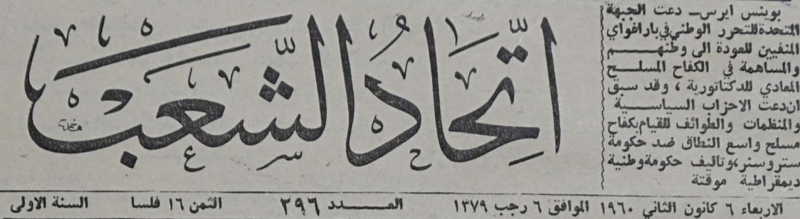 بوينس ايرس ــ دعت الجبهة
المتحدة للتحرر الوطني في باراغواي
المنفيين للعودة الى وطنهم
والمساهمة في الكفاح المسلح
المعادي للدكتاتورية ، وقد سبق
ان دعت الاحزاب السياسية
والمنظمات والطوائف للقيام بكفاح
مسلح واسع النطاق ضد حكومة
ستروسنر، وتاليف حكومة وطنية
ديمقراطية موقتة
اتحاد الشعب
الاربعاء ٦ كانون الثاني ١٩٦٠ الموافق ٦ رجب ١٣٧٩ العدد ٢٩٦ الثمن ١٦ فلسا السنة الاولى